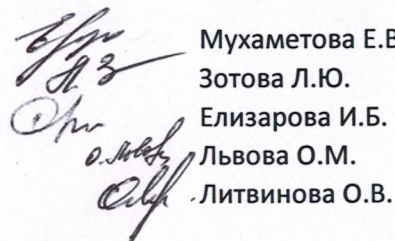 Мухаметова Е.В
Зотова Л.Ю.
Елизарова И.Б.
Львова О.М.
Литвинова О.В.